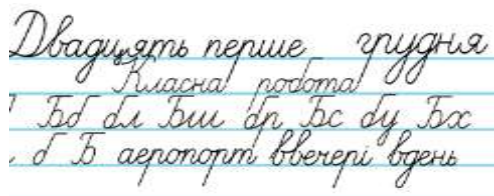 Двадцять перше грудня
Класна робота
Бб бл Бш бр Бс бу Бх
б Б аеропорт ввечері вдень